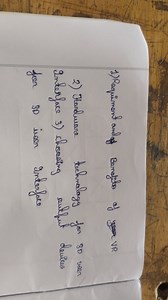 1) Requirement and of Benefits of VR
2) Hardware technology for 3D user
Interface 3) choosing output devices
for 3D user interface